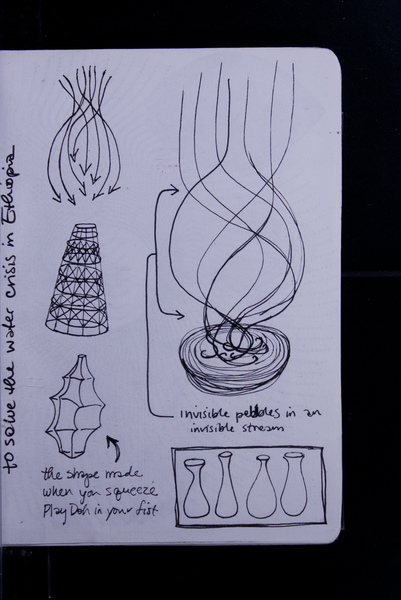 to solve the water crisis in Ethiopia
Invisible pebbles in an
invisible stream
the shape made
when you squeeze
Play Doh in your fist